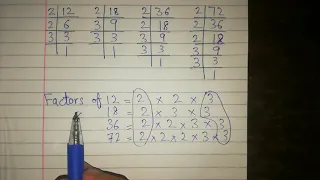 2 12 2 18 2 36 2 72
2 6 3 9 2 18 2 36
3 3 3 3 3 9 2 18
1 1 3 3 3 9
1 3 3
1
Factors of 12 = 2 × 2 × 3
18 = 2 × 3 × 3
36 = 2 × 2 × 3 × 3
72 = 2 × 2 × 2 × 3 × 3